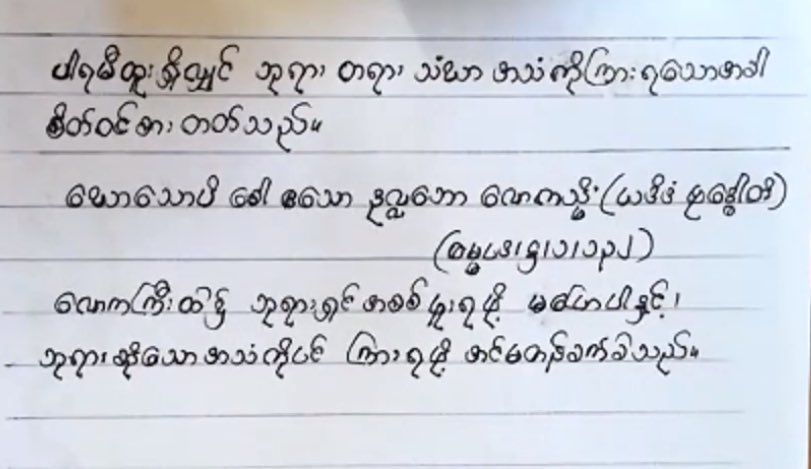 ပါရမီထူးရှိလျှင် ဘုရား တရား သံဃာ အသံကိုကြားရသောအခါ
စိတ်ဝင်စား တတ်သည်။
ဃောသောပိ ခေါ ဧသော ဒုလ္လဘော လောကသ္မိံ (ယဒိဒံ ဗုဒ္ဓေါတိ)
(ဓမ္မပဒ၊ဋ္ဌ၊၁၊၁၃၂)
လောကကြီးထဲ၌ ဘုရားရှင်အစစ် ဖူးရဖို့ မပြောပါနှင့်၊
ဘုရားဆိုသောအသံကိုပင် ကြားရဖို့ အင်မတန်ခက်ခဲသည်။